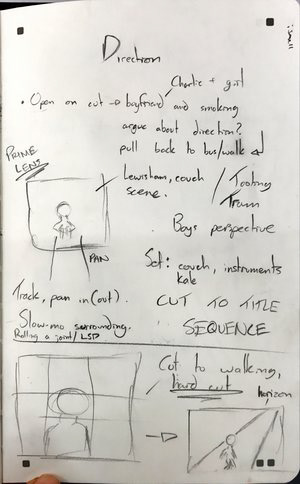 Direction
Charlie + girl
• Open on cut → boyfriend and smoking
argue about direction?
pull back to bus/walk
PRIME LENS
Lewisham, couch scene.
/ Tooting Tram
Boys perspective
PAN
Set: couch, instruments
Kale
Track, pan in (out).
CUT TO TITLE
SEQUENCE
Slow-mo surrounding.
Rolling a joint / LSD
Cut to walking,
hard cut
horizon